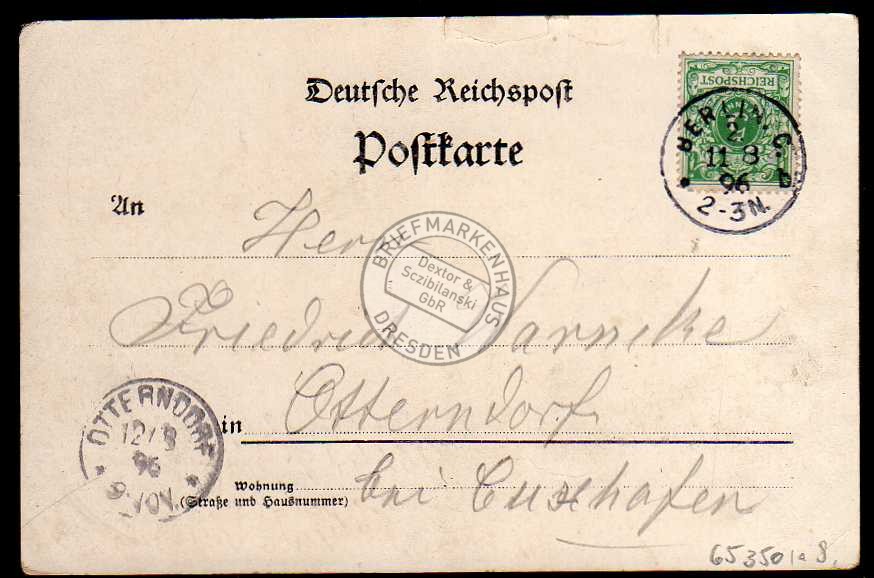 Deutsche Reichspost
Postkarte
REICHSPOST
BERLIN. C.
2
11 8
96
2-3N.
An
Herrn
Friedrich Warncke
in Otterndorf
Wohnung
(Straße und Hausnummer)
bei Cuxhafen
OTTERNDORF
12/8
96
9-10V.
BRIEFMARKENHAUS
Dextor &
Sczibilanski
GbR
DRESDEN
65350 1a 8,